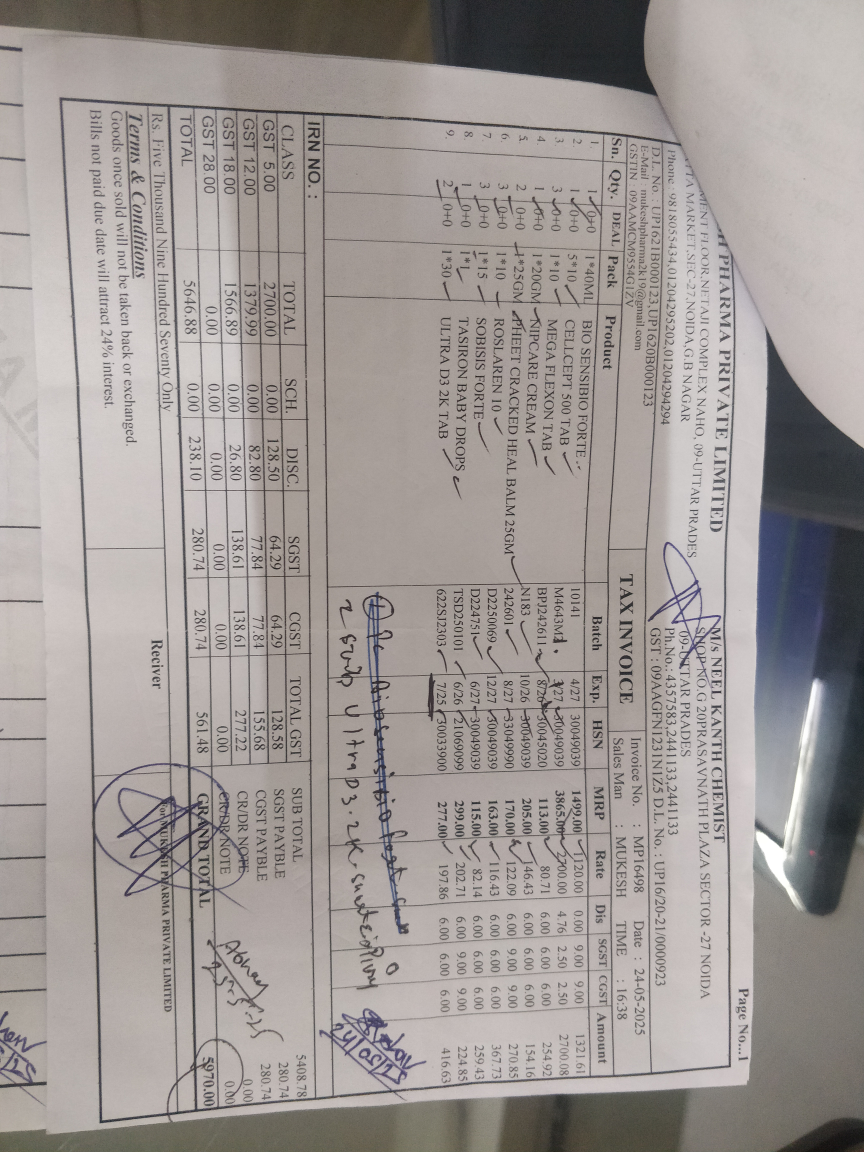 Page No...1
SH PHARMA PRIVATE LIMITED
MENT FLOOR,NETAJI COMPLEX NAHO, 09-UTTAR PRADES
TTA MARKET,SEC-27,NOIDA,G.B NAGAR
Phone : 9818055434,01204295202,01204294294
D.L. No. : UP1621B000123,UP1620B000123
E-Mail : mukeshpharma2k19@gmail.com
GSTIN : 09AAMCM9554G1ZV
TAX INVOICE
M/s NEEL KANTH CHEMIST
SHOP NO.G 20PRASAVNATH PLAZA SECTOR -27 NOIDA
09-UTTAR PRADES
Ph.No.: 4357583,2441133,2441133
GST : 09AAGFN1231N1Z5 D.L. No. : UP16/20-21/0000923
Invoice No. : MP16498 Date : 24-05-2025
Sales Man : MUKESH TIME : 16:38
Sn. Qty. DEAL Pack Product Batch Exp. HSN MRP Rate Dis SGST CGST Amount
1. 1 0+0 1*40ML BIO SENSIBIO FORTE 10141 4/27 30049039 1499.00 1120.00 0.00 9.00 9.00 1321.61
2 1 0+0 5*10 CELLCEPT 500 TAB M4643M1 3/27 30049039 3865.00 2700.00 4.76 2.50 2.50 2700.08
3. 3 0+0 1*10 MEGA FLEXON TAB BPJ242611 8/26 30045020 113.00 80.71 6.00 6.00 6.00 254.92
4. 1 0+0 1*20GM NIPCARE CREAM N183 10/26 30049039 205.00 146.43 6.00 6.00 6.00 154.16
5. 2 0+0 1*25GM PHEET CRACKED HEAL BALM 25GM 242601 8/27 33049990 170.00 122.09 6.00 9.00 9.00 270.85
6. 3 0+0 1*10 ROSLAREN 10 D2250069 12/27 30049039 163.00 116.43 6.00 6.00 6.00 367.73
7. 3 0+0 1*15 SOBISIS FORTE D224751 6/27 30049039 115.00 82.14 6.00 6.00 6.00 259.43
8 1 0+0 1*1 TASIRON BABY DROPS TSD250101 6/26 21069099 299.00 202.71 6.00 9.00 9.00 224.85
9. 2 0+0 1*30 ULTRA D3 2K TAB 622SJ2303 7/25 30033900 277.00 197.86 6.00 6.00 6.00 416.63
2 Ultra D3. 2K
24/05/25
IRN NO. :
CLASS TOTAL SCH. DISC. SGST CGST TOTAL GST
GST 5.00 2700.00 0.00 128.50 64.29 64.29 128.58
GST 12.00 1379.99 0.00 82.80 77.84 77.84 155.68
GST 18.00 1566.89 0.00 26.80 138.61 138.61 277.22
GST 28.00 0.00 0.00 0.00 0.00 0.00 0.00
TOTAL 5646.88 0.00 238.10 280.74 280.74 561.48
SUB TOTAL 5408.78
SGST PAYBLE 280.74
CGST PAYBLE 280.74
CR/DR NOTE 0.00
CR/DR NOTE 0.00
GRAND TOTAL 5970.00
Rs. Five Thousand Nine Hundred Seventy Only
Terms & Conditions
Goods once sold will not be taken back or exchanged.
Bills not paid due date will attract 24% interest.
Reciver
For MUKESH PHARMA PRIVATE LIMITED